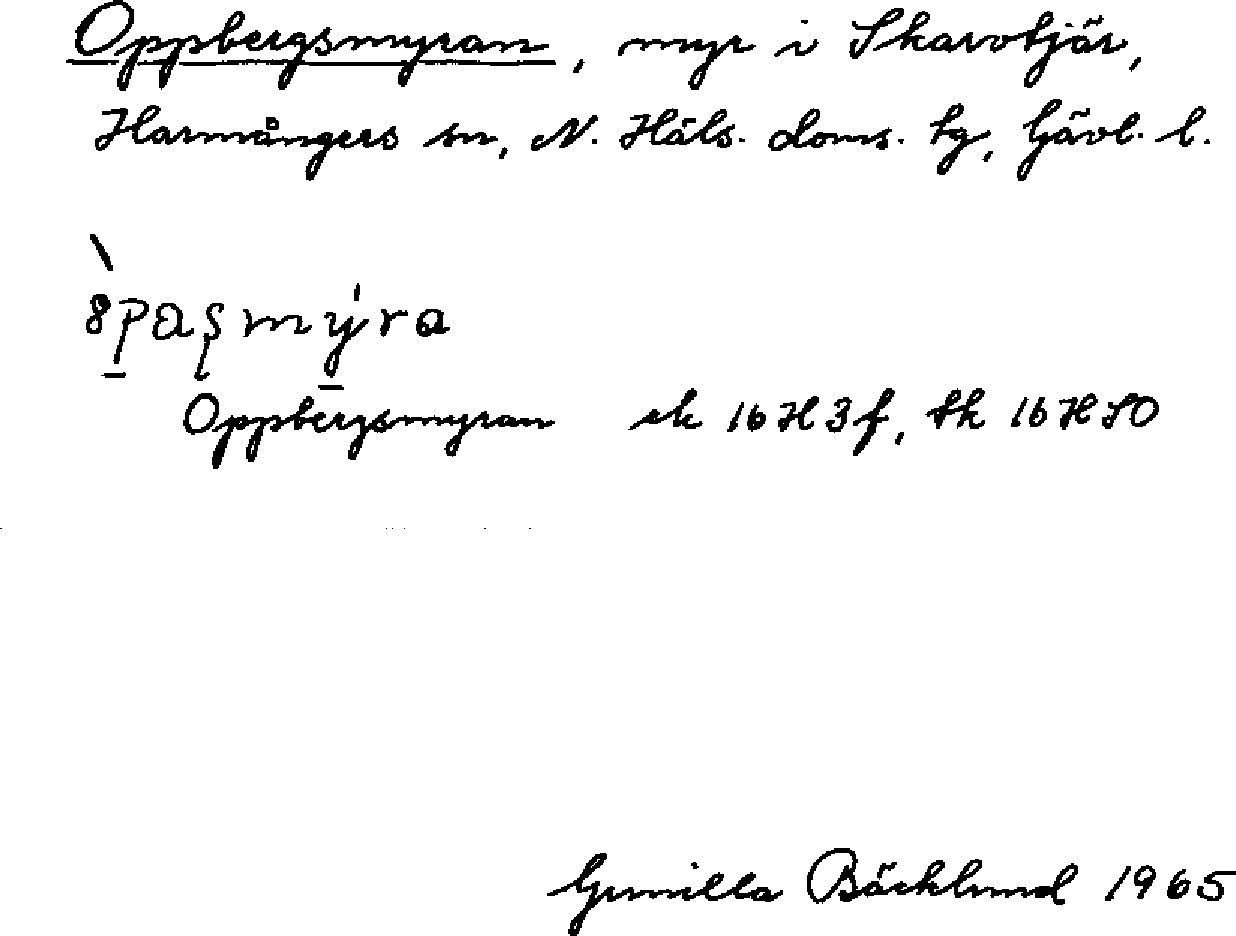 Oppbergsmyran, myr i Skarvtjär,
Harmångers sn, N. Häls. doms. tg, Gävl. l.
8pasmýra
Oppbergsmyran ek 16H3f, tk 16HSO
Gunilla Bäcklund 1965